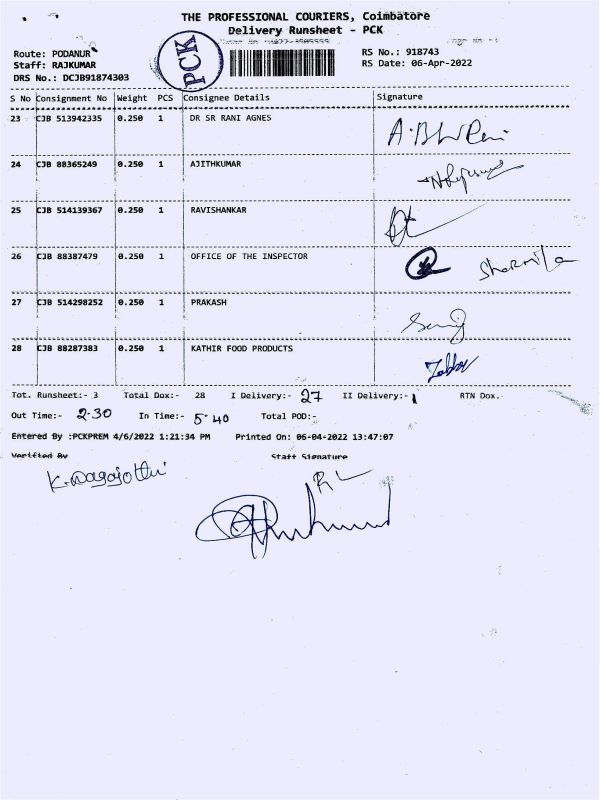 THE PROFESSIONAL COURIERS, Coimbatore
Delivery Runsheet - PCK
Route: PODANUR
Staff: RAJKUMAR
DRS No.: DCJB91874303
PCK
RS No.: 918743
RS Date: 06-Apr-2022
S No Consignment No Weight PCS Consignee Details Signature
23 CJB 513942335 0.250 1 DR SR RANI AGNES
24 CJB 88365249 0.250 1 AJITHKUMAR
25 CJB 514139367 0.250 1 RAVISHANKAR
26 CJB 88387479 0.250 1 OFFICE OF THE INSPECTOR Sharmila
27 CJB 514298252 0.250 1 PRAKASH
28 CJB 88287383 0.250 1 KATHIR FOOD PRODUCTS
Tot. Runsheet:- 3 Total Dox:- 28 I Delivery:- 27 II Delivery:- 1 RTN Dox.
Out Time:- 2-30 In Time:- 5-40 Total POD:-
Entered By :PCKPREM 4/6/2022 1:21:34 PM Printed On: 06-04-2022 13:47:07
Verified By Staff Signature